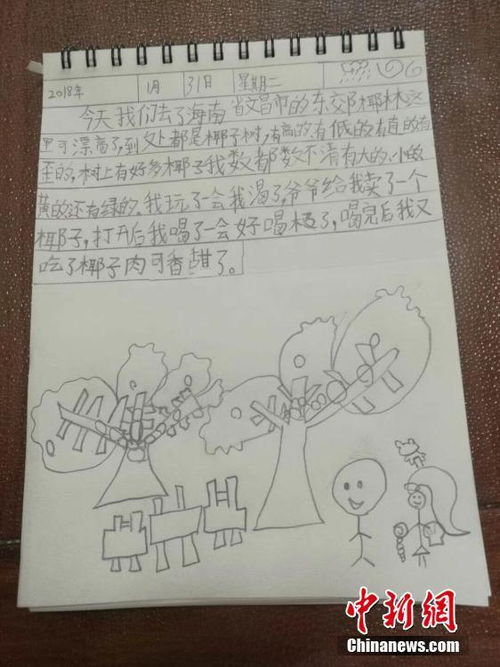 2018年 1月 31日 星期二
今天我们去了海南省文昌市的东郊椰林这
里可漂亮了,到处都是椰子树,有高的有低的有直的有
歪的,树上有好多椰子我数都数不清有大的、小的
黄的还有绿的。我玩了一会我渴了,爷爷给我卖了一个
椰子,打开后我喝了一会好喝极了,喝完后我又
吃了椰子肉可香甜了。
中新网
Chinanews.com